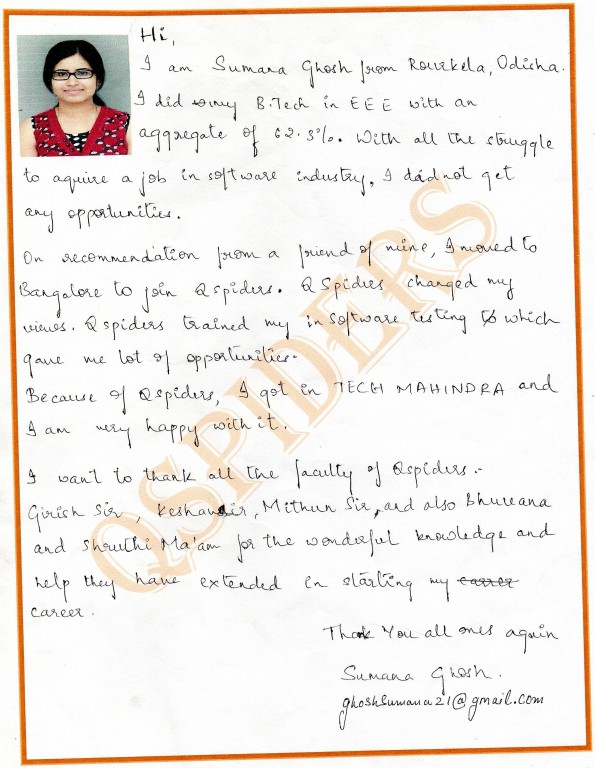 Hi,
I am Sumana Ghosh from Rourkela, Odisha.
I did my B.Tech in EEE with an
aggregate of 62.3%. With all the struggle
to aquire a job in software industry, I did not get
any opportunities.
On recommendation from a friend of mine, I moved to
Bangalore to join Qspiders. QSpiders changed my
views. Qspiders trained my in software testing which
gave me lot of opportunities.
Because of Qspiders, I got in TECH MAHINDRA and
I am very happy with it.
I want to thank all the faculty of Qspiders.-
Girish Sir, Keshav Sir, Mithun Sir, and also Bhuvana
and Shruthi Ma'am for the wonderful knowledge and
help they have extended in starting my carrer
career.
Thank You all ones again
Sumana Ghosh.
ghoshsumana21@gmail.com
QSPIDERS